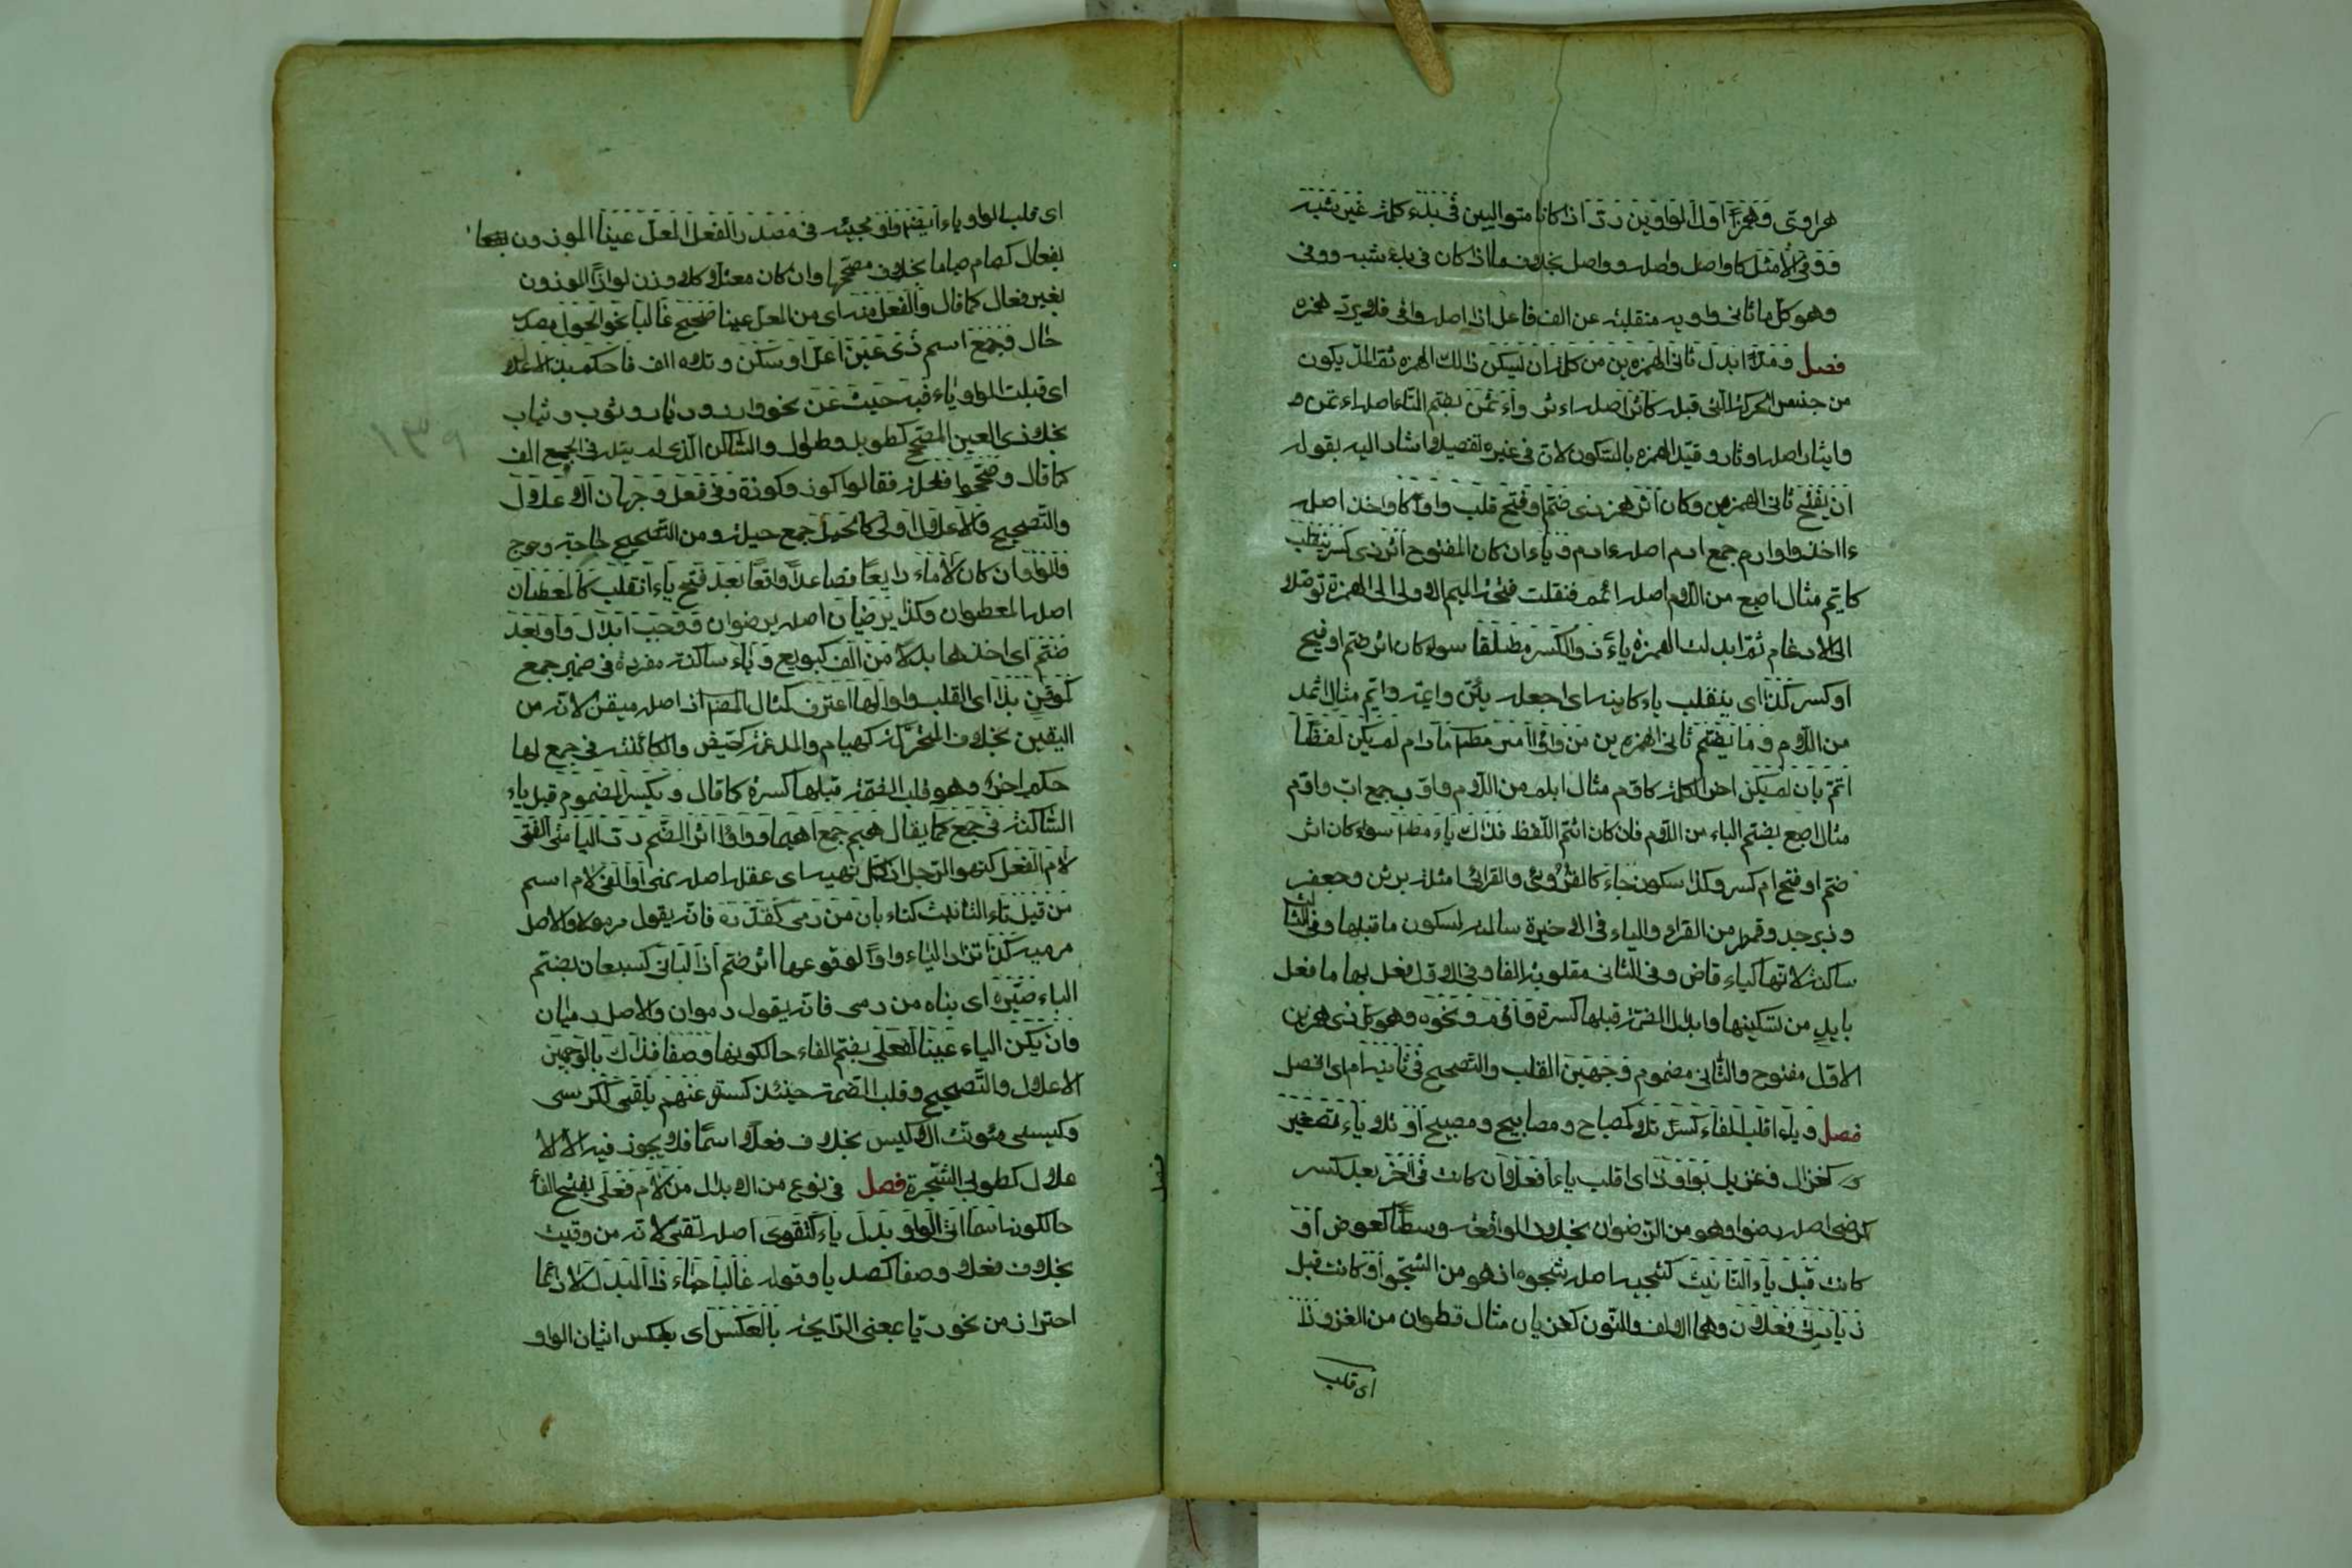 هراوى وهمزا اول الواوين رد اذا كانا متواليين فى بدء كلمة غير شبه
ووفى الاشد كاواصل اصله وواصل بخلاف ما اذا كان فى بدء شبه ووفى
وهو كل ما ثانى واويه منقلبة عن الف فاعل اذا اصله وافى فلا يرد همزه
فصل ومدا ابدل ثانى الهمزه ين من كلمة ان يسكن ذالك الهمزه ثم المد يكون
من جنس الحركة التى قبله كآثر اصله اءثر واؤتمن بضم التاء اصله اءتمن و
وايثار اصله اءثار وقيّد الهمزه بالسكون لان فى غيره تفصيلا اشار اليه بقوله
ان يفتح ثانى الهمزين وكان اثر همز ذى ضم او فتح قلب واوا كاواخذ اصله
ءااخذ واوادم جمع ادم اصله ءادم وياء ان كان المفتوح اثر ذى كسر ينقلب
كايم مثال اصبع من الام اصله ائمم فنقلت فتحة الميم الاولى الى الهمزة توصلا
الى الادغام ثم ابدلت الهمزة ياء ذو الكسر مطلقا سواء كان اثر ضم او فتح
او كسر كذا اى ينقلب ياء كاينه اى اجعله يئن واعيه وايم مثال اثمد
من الام وما يضم ثانى الهمزه ين من واوا اصر مطلقا مادام لم يكن لفظا
اتم بان لم يكن اخر الكلمة كاوم مثال ابلم من الام واوب جمع اب واوم
مثال اصبع بضم الباء من الام فان كان اتم اللفظ فذاك ياء مطلقا سواء كان اثر
ضم او فتح ام كسر وكذا سكون جاء كالقرؤئ والقرائى امثلة برثن وجعفر
وزبرجد وقمطر من القراء والياء فى الاخيرة سالمة لسكون ما قبلها وفى الثالث
ساكنة لانها كياء قاض وفى الثانى مقلوبة الفا وفى الاول فعل بها ما فعل
بايد من تسكينها وابدال الضمة قبلها كسرة واوم ونحوه وهو كل ذى همزين
الاول مفتوح والثانى مضموم وجهين القلب والتصحيح فى ثانيه ام اى اقصد
فصل وياء اقلب الفاء كسرا تلا كمصباح ومصابيح ومصيبيح او تلا ياء تصغير
كغزال وغزيل بواو ذا اى اقلب ياء افعلا ان كانت فى اخر بعد كسر
كرضى اصله رضو وهو من الرضوان بخلاف الواقعة وسطا كعوض او
كانت قبل ياء التانيث كشجيه اصله شجوه اذ هو من الشجو او كانت قبل
زيادتى فعلان وهما الالف والنون كغزيان مثال قطوان من الغزو ذا
اى قلب
اى قلب الواو ياء ايضا راوا مجيئه فى مصدر الفعل المعل عينا الموزون
بفعال كصام صياما بخلاف مصححها وان كان معتلا كلاوذ لواذا الموزون
بغير فعال كما قال والفعل منه اى من المعل عينا صحيح غالبا نحو الحول مصدر
حال وجمع اسم ذى عين اعل او سكن وتلاه الف فاحكم بذا الاعلال
اى قبلت الواو ياء فيه حيث عن نحو دار وديار وثوب وثياب
بخلاف ذى العين المصحح كطويل وطوال والساكن الذى لم يتله فى الجمع الف
كما قال وصححوا فعلة فقالوا كوز وكوزة وفى فعل وجهان الاعلال
والتصحيح والاعلال اولى كالحيل جمع حيلة ومن التصحيح حاجة وحوج
والواو ان كان لاما رابعا فصاعدا واقعا بعد فتح ياء انقلب كالمعطيان
اصله المعطوان وكذا يرضيان اصله يرضوان ووجب ابدال واو بعد
ضم اى اخذها بدلا من الف كبويع وياء ساكنة مفردة فى غير جمع
كموقن بذا اى القلب واوا لها اعترف كمثال المصنف اذ اصله ميقن لانه من
اليقين بخلاف المتحركة كهيام والمدغمة كحيض والكائنة فى جمع لها
حكم اخر وهو قلب الضمة قبلها كسرة كما قال ويكسر المضموم قبل ياء
الساكنة فى جمع كما يقال هيم جمع اهيما وواوا اثر الضم رد اليا متى الفى
لام الفعل كنهو الرجل اذا كمل نهيه اى عقله اصله نهى او الفى لام اسم
من قبل تاء التانيث كتاء بان من رمى كمقدره فانه يقول مرموه والاصل
مرميه كذا ترد الياء واوا لوقوعها اثر ضم اذا البانى كسبعان بضم
الباء صيره اى بناه من رمى فانه يقول رموان والاصل رميان
وان يكن الياء عينا لفعلى بضم الفاء حالكونها وصفا فذاك بالوجهين
الاعلال والتصحيح وقلب الضمة حينئذ كسرة عنهم يلقى ككوسى
وكيسى مئونث الاكيس بخلاف فعلى اسما فلا يجوز فيه الا الا
علال كطوبى الشجرة فصل فى نوع من الابدال من لام فعلى بفتح الفا
حالكونه اسما اتى الواو بدل ياء كتقوى اصله تقيى لانه من وقيت
بخلاف فعلى وصفا كصديا وقوله غالبا جاء ذا البدل لا دائما
احتراز من نحو ريا بمعنى الرايحة بالعكس اى بعكس اتيان الواو